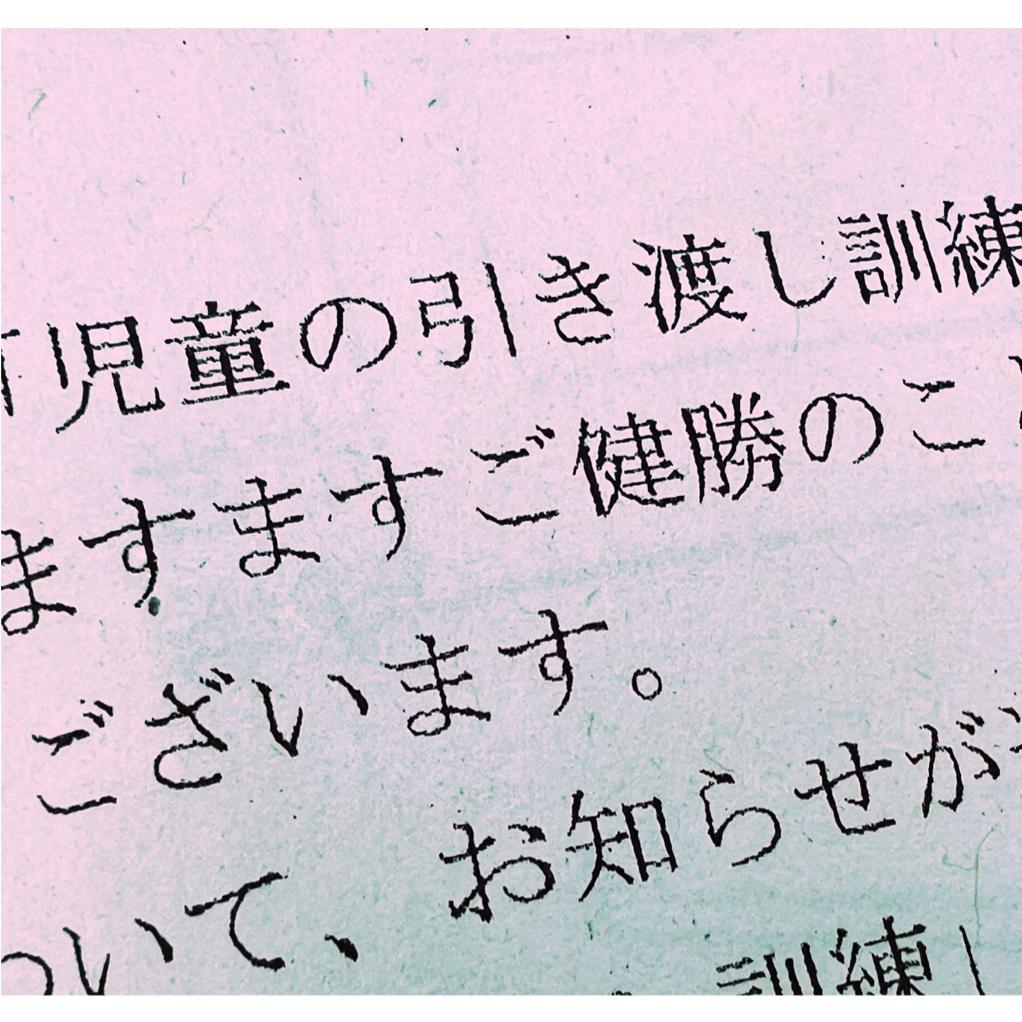 児童の引き渡し訓練
ますますご健勝のこ
ございます。
ついて、お知らせが
訓練